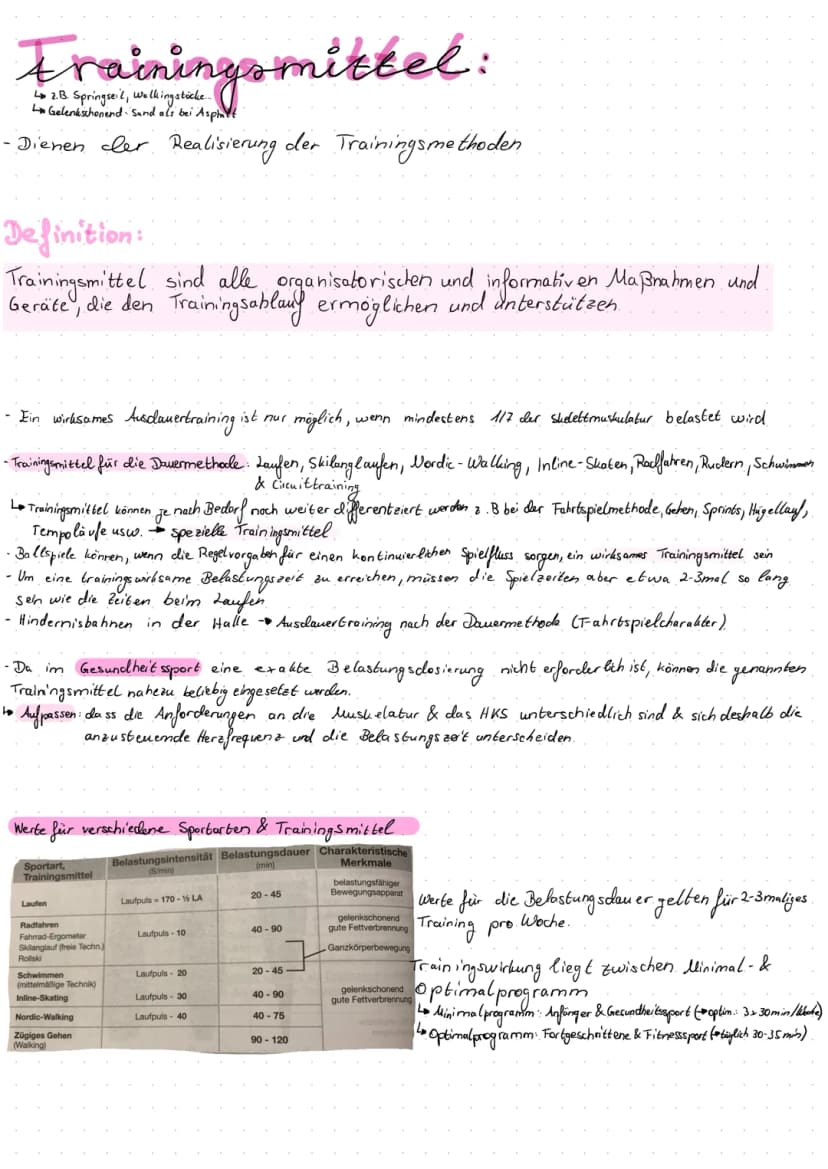 Trainingsmittel:
↳ z.B. Springseil, Walkingstöcke..
↳ Gelenkschonend - Sand als bei Asphalt
- Dienen der Realisierung der Trainingsmethoden
Definition:
Trainingsmittel sind alle organisatorischen und informativen Maßnahmen und
Geräte, die den Trainingsablauf ermöglichen und unterstützen.
- Ein wirksames Ausdauertraining ist nur möglich, wenn mindestens 1/7 der Skelettmuskulatur belastet wird
- Trainingsmittel für die Dauermethode: Laufen, Skilanglaufen, Nordic-Walking, Inline-Skaten, Radfahren, Rudern, Schwimmen
& Circuittraining
↳ Trainingsmittel können je nach Bedarf noch weiter differenziert werden z.B bei der Fahrtspielmethode, Gehen, Sprints, Hügellauf,
Tempoläufe usw. → spezielle Trainingsmittel
- Ballspiele können, wenn die Regelvorgaben für einen kontinuierlichen Spielfluss sorgen, ein wirksames Trainingsmittel sein
- Um eine trainingswirksame Belastungszeit zu erreichen, müssen die Spielzeiten aber etwa 2-3mal so lang
sein wie die Zeiten beim Laufen
- Hindernisbahnen in der Halle → Ausdauertraining nach der Dauermethode (Fahrtspielcharakter)
- Da im Gesundheitssport eine exakte Belastungsdosierung nicht erforderlich ist, können die genannten
Trainingsmittel nahezu beliebig eingesetzt werden.
↳ Aufpassen: dass die Anforderungen an die Muskelatur & das HKS unterschiedlich sind & sich deshalb die
anzusteuernde Herzfrequenz und die Belastungszeit unterscheiden.
Werte für verschiedene Sportarten & Trainingsmittel
Sportart, Trainingsmittel | Belastungsintensität (S/min) | Belastungsdauer (min) | Charakteristische Merkmale
Laufen | Laufpuls = 170 - ½ LA | 20 - 45 | belastungsfähiger Bewegungsapparat
Radfahren Fahrrad-Ergometer | Laufpuls - 10 | 40 - 90 | gelenkschonend gute Fettverbrennung
Skilanglauf (freie Techn.) Rollski | Ganzkörperbewegung
Schwimmen (mittelmäßige Technik) | Laufpuls - 20 | 20 - 45
Inline-Skating | Laufpuls - 30 | 40 - 90 | gelenkschonend gute Fettverbrennung
Nordic-Walking | Laufpuls - 40 | 40 - 75
Zügiges Gehen (Walking) | 90 - 120
Werte für die Belastungsdauer gelten für 2-3maliges
Training pro Woche.
Trainingswirkung liegt zwischen Minimal- &
Optimalprogramm
↳ Minimalprogramm: Anfänger & Gesundheitssport (→ optim.: 3x30min/Woche)
↳ Optimalprogramm: Fortgeschrittene & Fitnesssport (→ täglich 30-35 min)